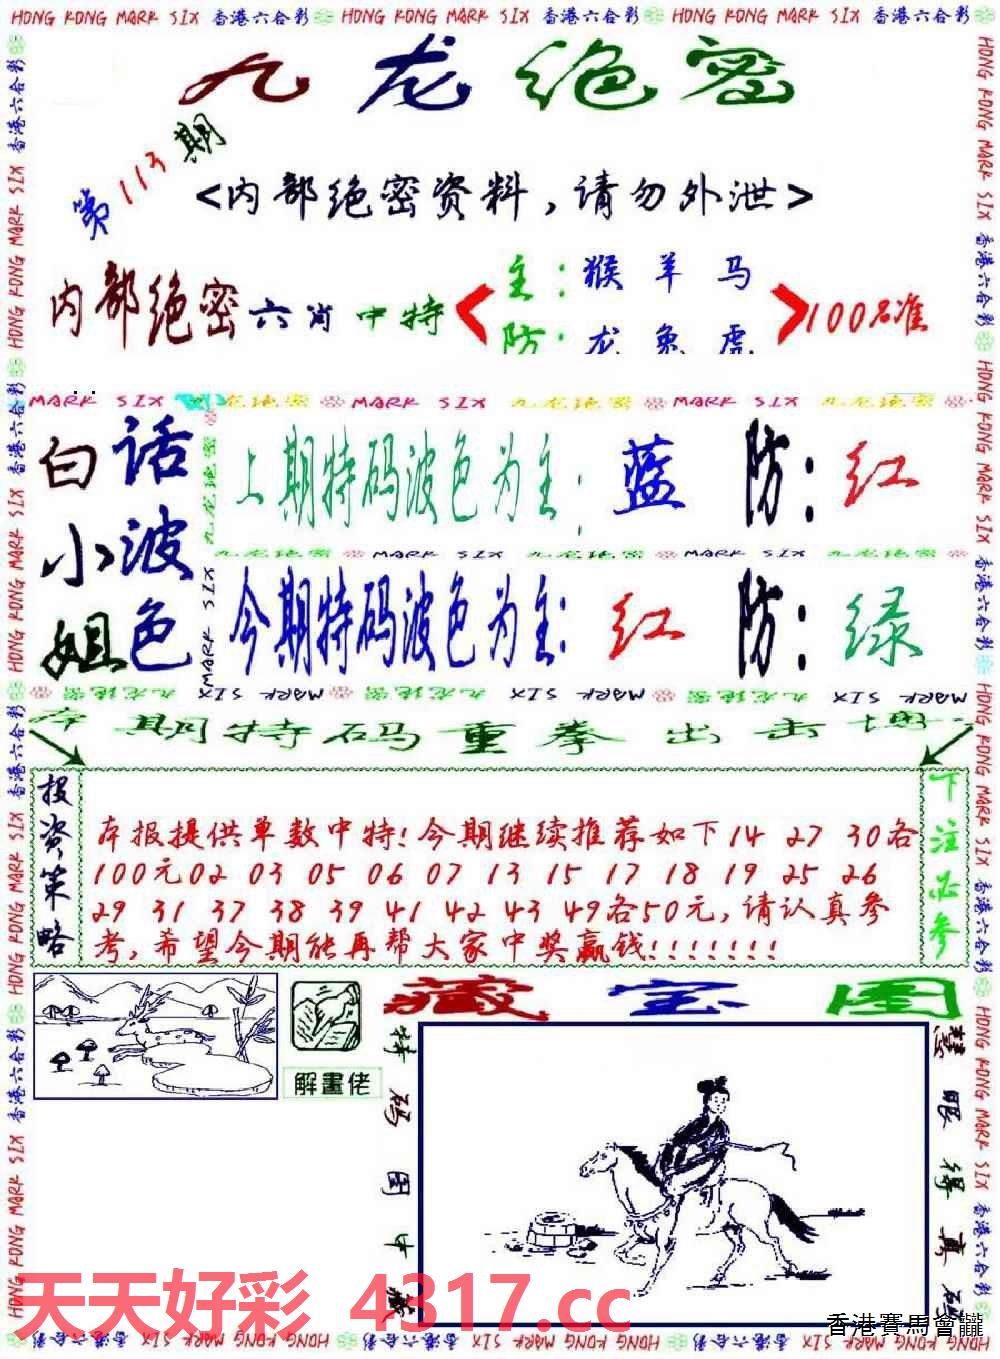 HONG KONG MARK SIX 香港六合彩 HONG KONG MARK SIX 香港六合彩 HONG KONG MARK SIX 香港六合彩
九龙绝密
第113期
<内部绝密资料,请勿外泄>
内部绝密六肖中特
主:猴羊马
防:龙兔虎
100%准
MARK SIX 九龙绝密 MARK SIX 九龙绝密 MARK SIX 九龙绝密
白小姐
话波色
上期特码波色为主:蓝 防:红
九龙绝密 MARK SIX 九龙绝密 MARK SIX 九龙绝密
今期特码波色为主:红 防:绿
本期特码重拳出击
投资策略
本报提供单数中特!今期继续推荐如下14 27 30各
100元02 03 05 06 07 13 15 17 18 19 25 26
29 31 37 38 39 41 42 43 49各50元,请认真参
考,希望今期能再帮大家中奖赢钱!!!!!!!
下注必参
藏宝图
解畫佬
特码图中藏
慧眼得真码
天天好彩 4317.cc
香港賽馬會